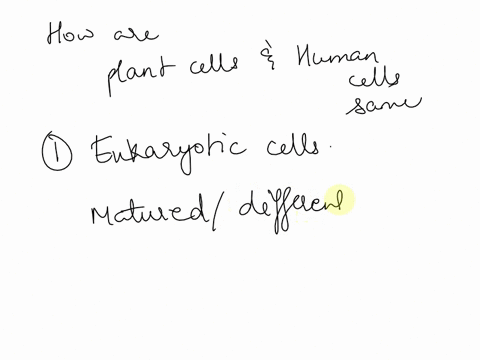 How are
plant cells & Human
cells
same
① Eukaryotic cells.
Matured/ different